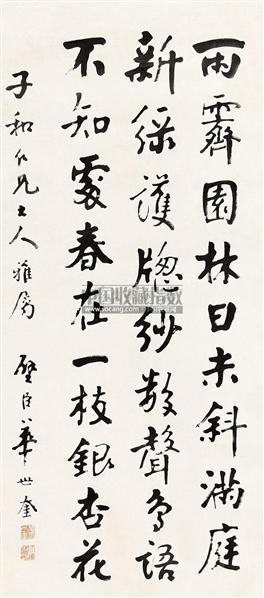 雨霽園林日未斜滿庭
新綠護牕紗數聲鳥語
不知處春在一枝銀杏花
子和仁兄大人雅屬 璧臣華世奎
中国收藏指数
www.socang.com